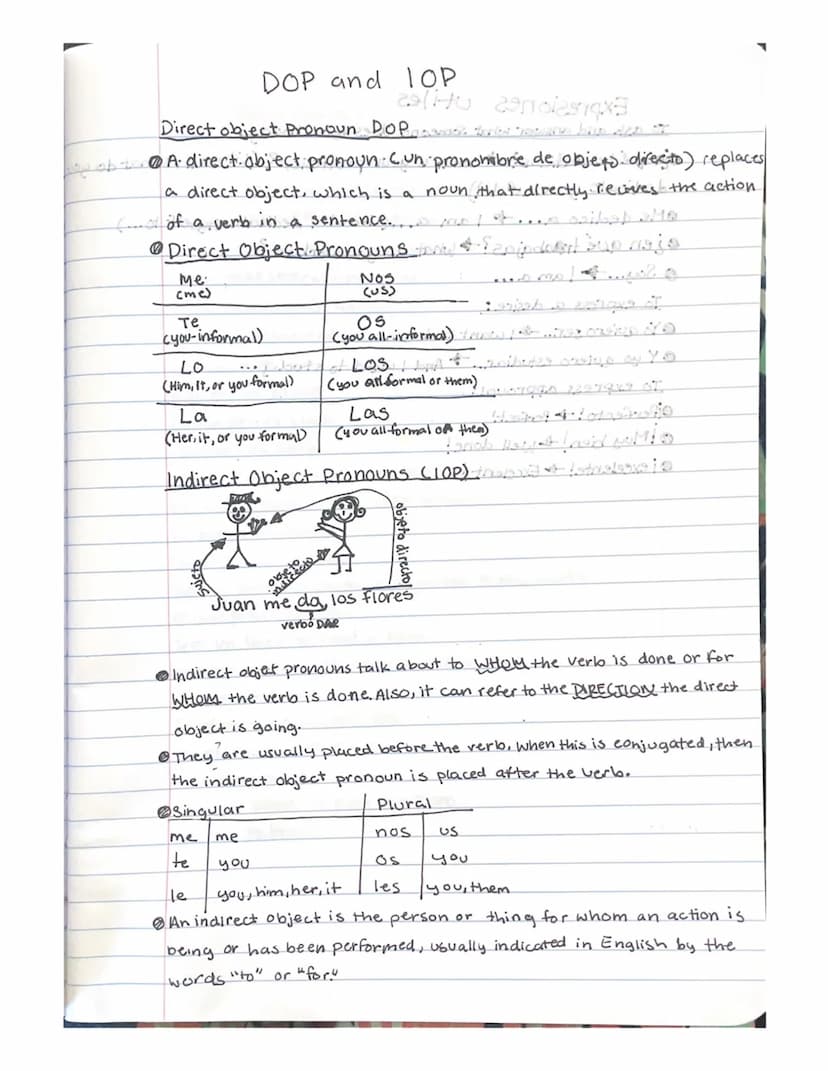 DOP and IOP
Direct object Pronoun DOP
A direct object pronoun (un pronombre de objeto directo) replaces
a direct object, which is a noun that directly recives the action
of a verb in a sentence.
Direct Object Pronouns
Me Nos
(me) (us)
Te Os
(you-informal) (you all-informal)
Lo Los
(Him, It, or you formal) (you all formal or them)
La Las
(Her, it, or you formal) (you all-formal or them)
Indirect Object Pronouns (IOP)
Sujeto
objeto indirecto
objeto directo
Juan me da los flores
verbo DAR
Indirect objet pronouns talk about to WHOM the verb is done or for
WHOM the verb is done. Also, it can refer to the DIRECTION the direct
object is going.
They are usually placed before the verb, when this is conjugated, then
the indirect object pronoun is placed after the verb.
Singular Plural
me me nos us
te you os you
le you, him, her, it les you, them
An indirect object is the person or thing for whom an action is
being or has been performed, usually indicated in English by the
words "to" or "for."